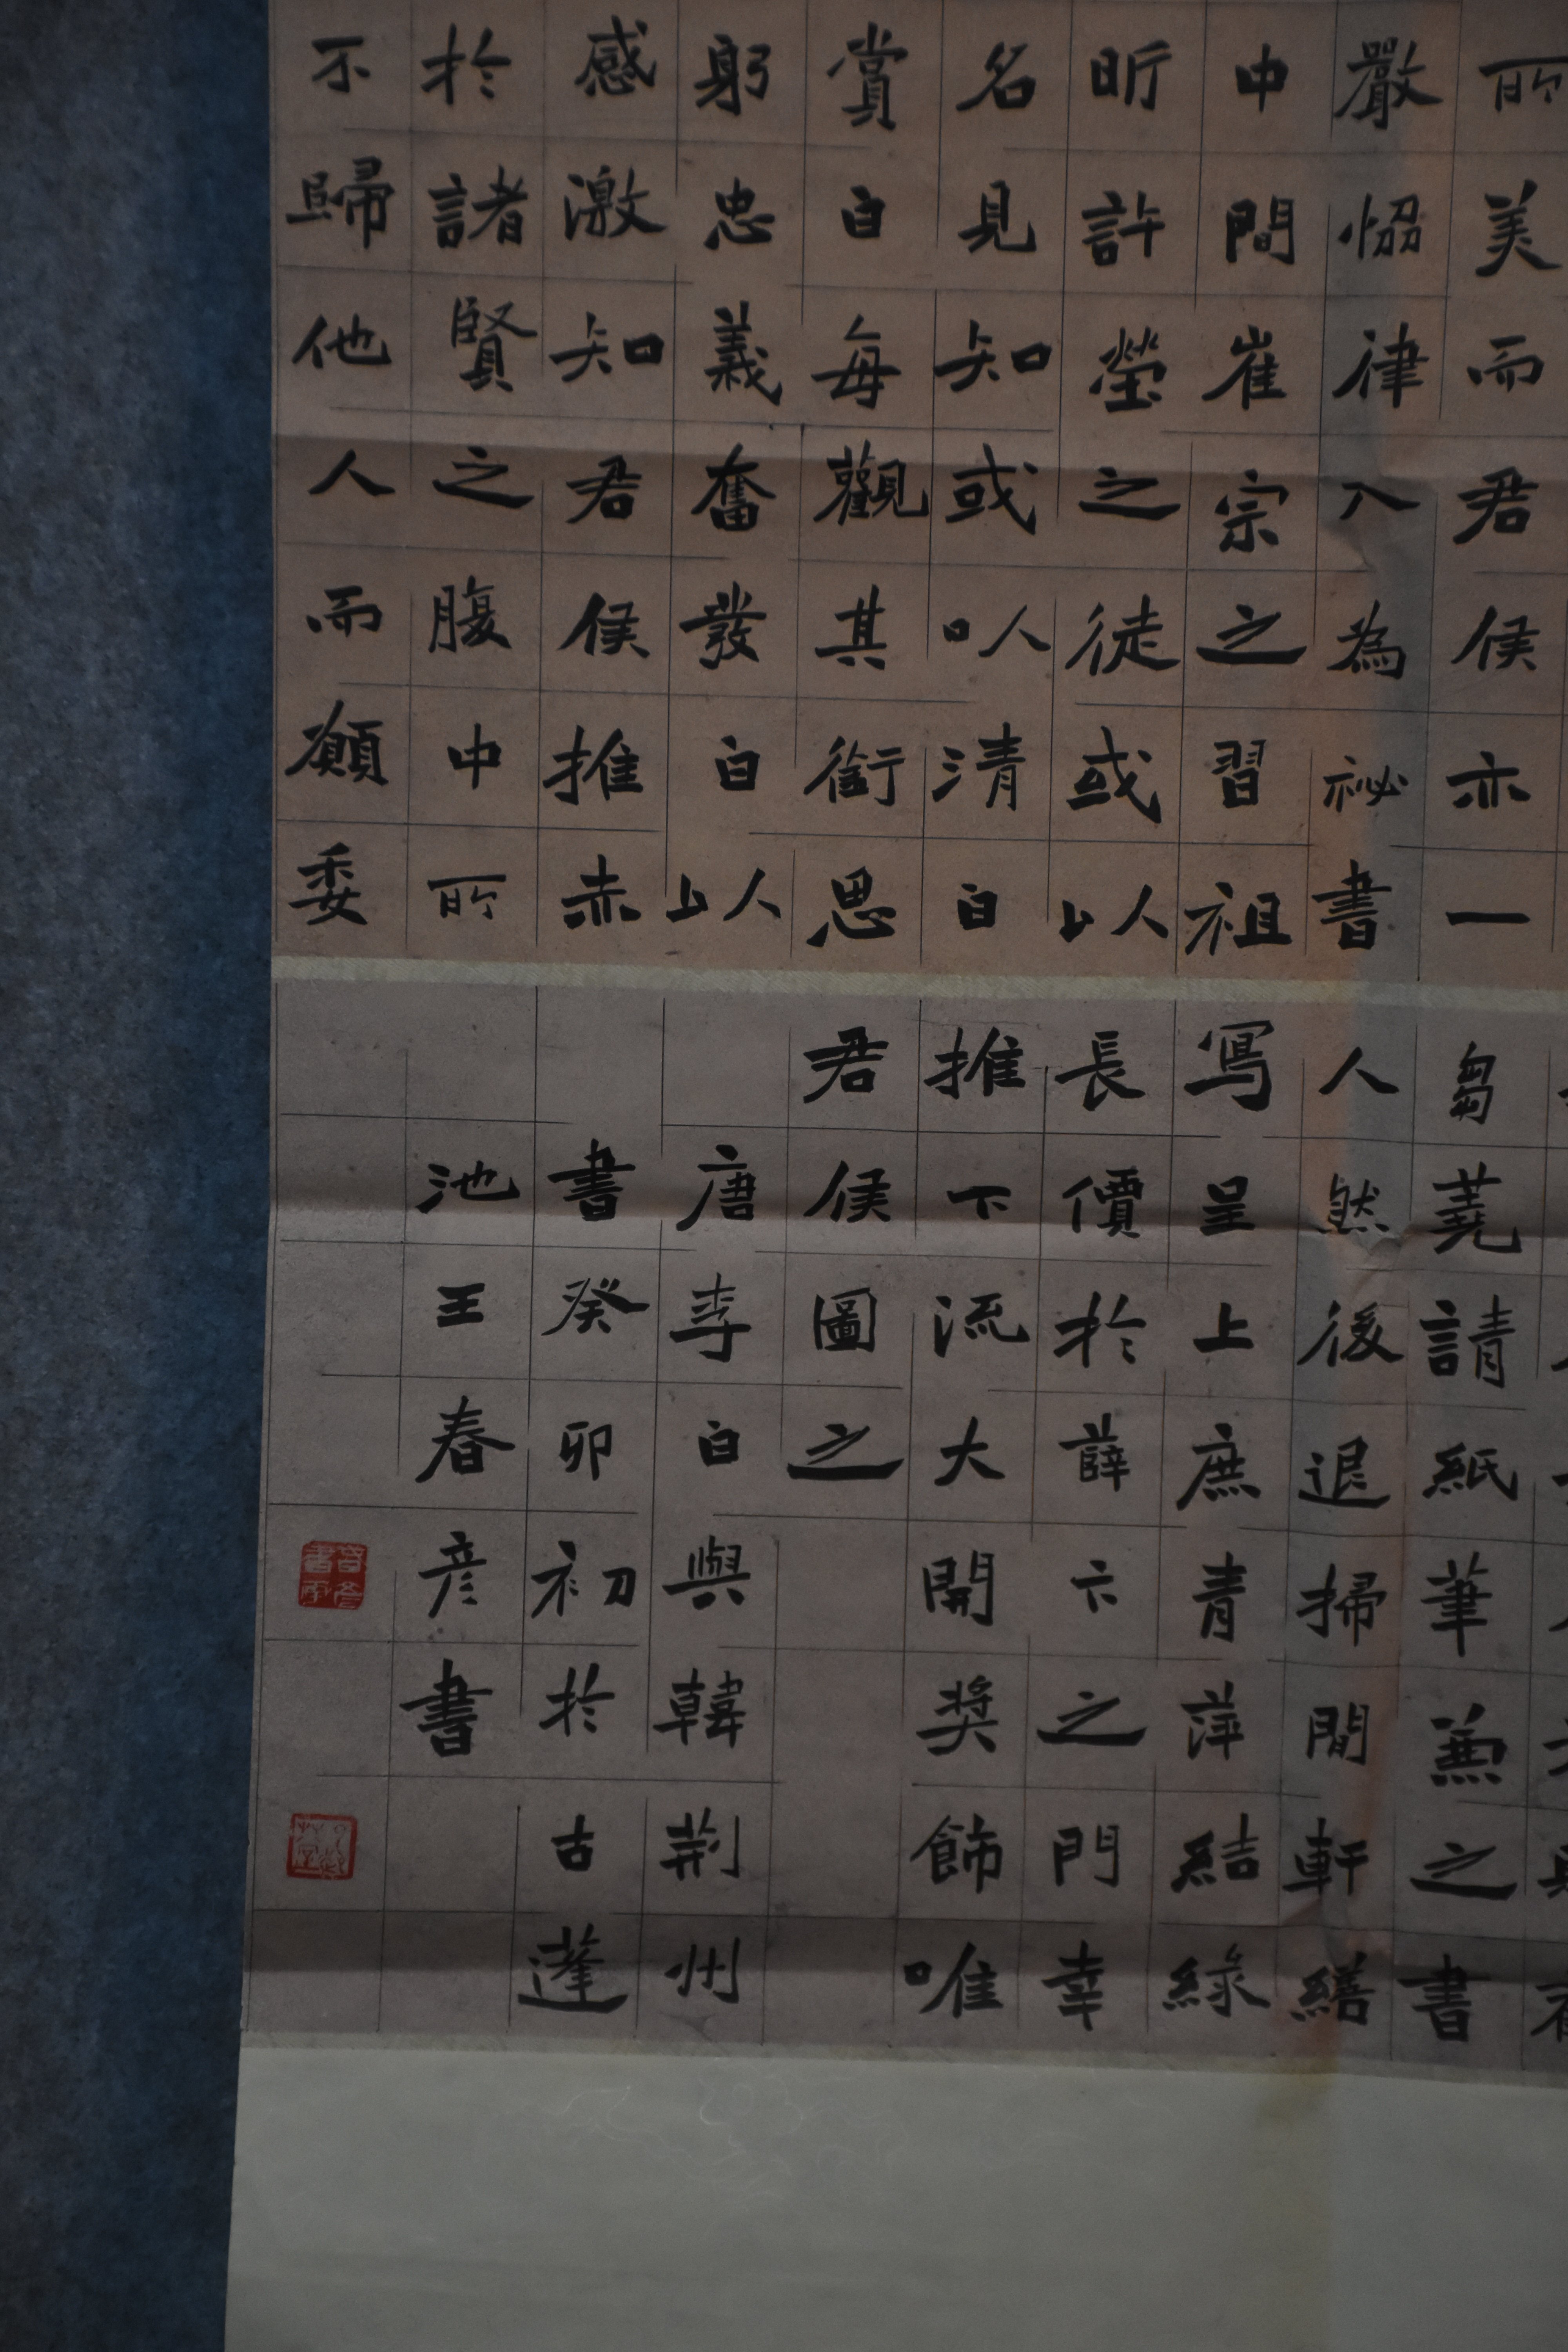 所美而君侯亦一
嚴恊律入為祕書
中間崔宗之習祖
昕許瑩之徒或以
名見知或以清白
賞白每觀其銜恩
躬忠義奮發白以
感激知君侯推赤
於諸賢之腹中所
不歸他人而願委
芻蕘請紙筆兼之書
人然後退掃閒軒繕
寫呈上庶青萍結綠
長價於薛卞之門幸
推下流大開獎飾唯
君侯圖之
唐李白與韓荊州
書癸卯初於古蓬
池王春彥書